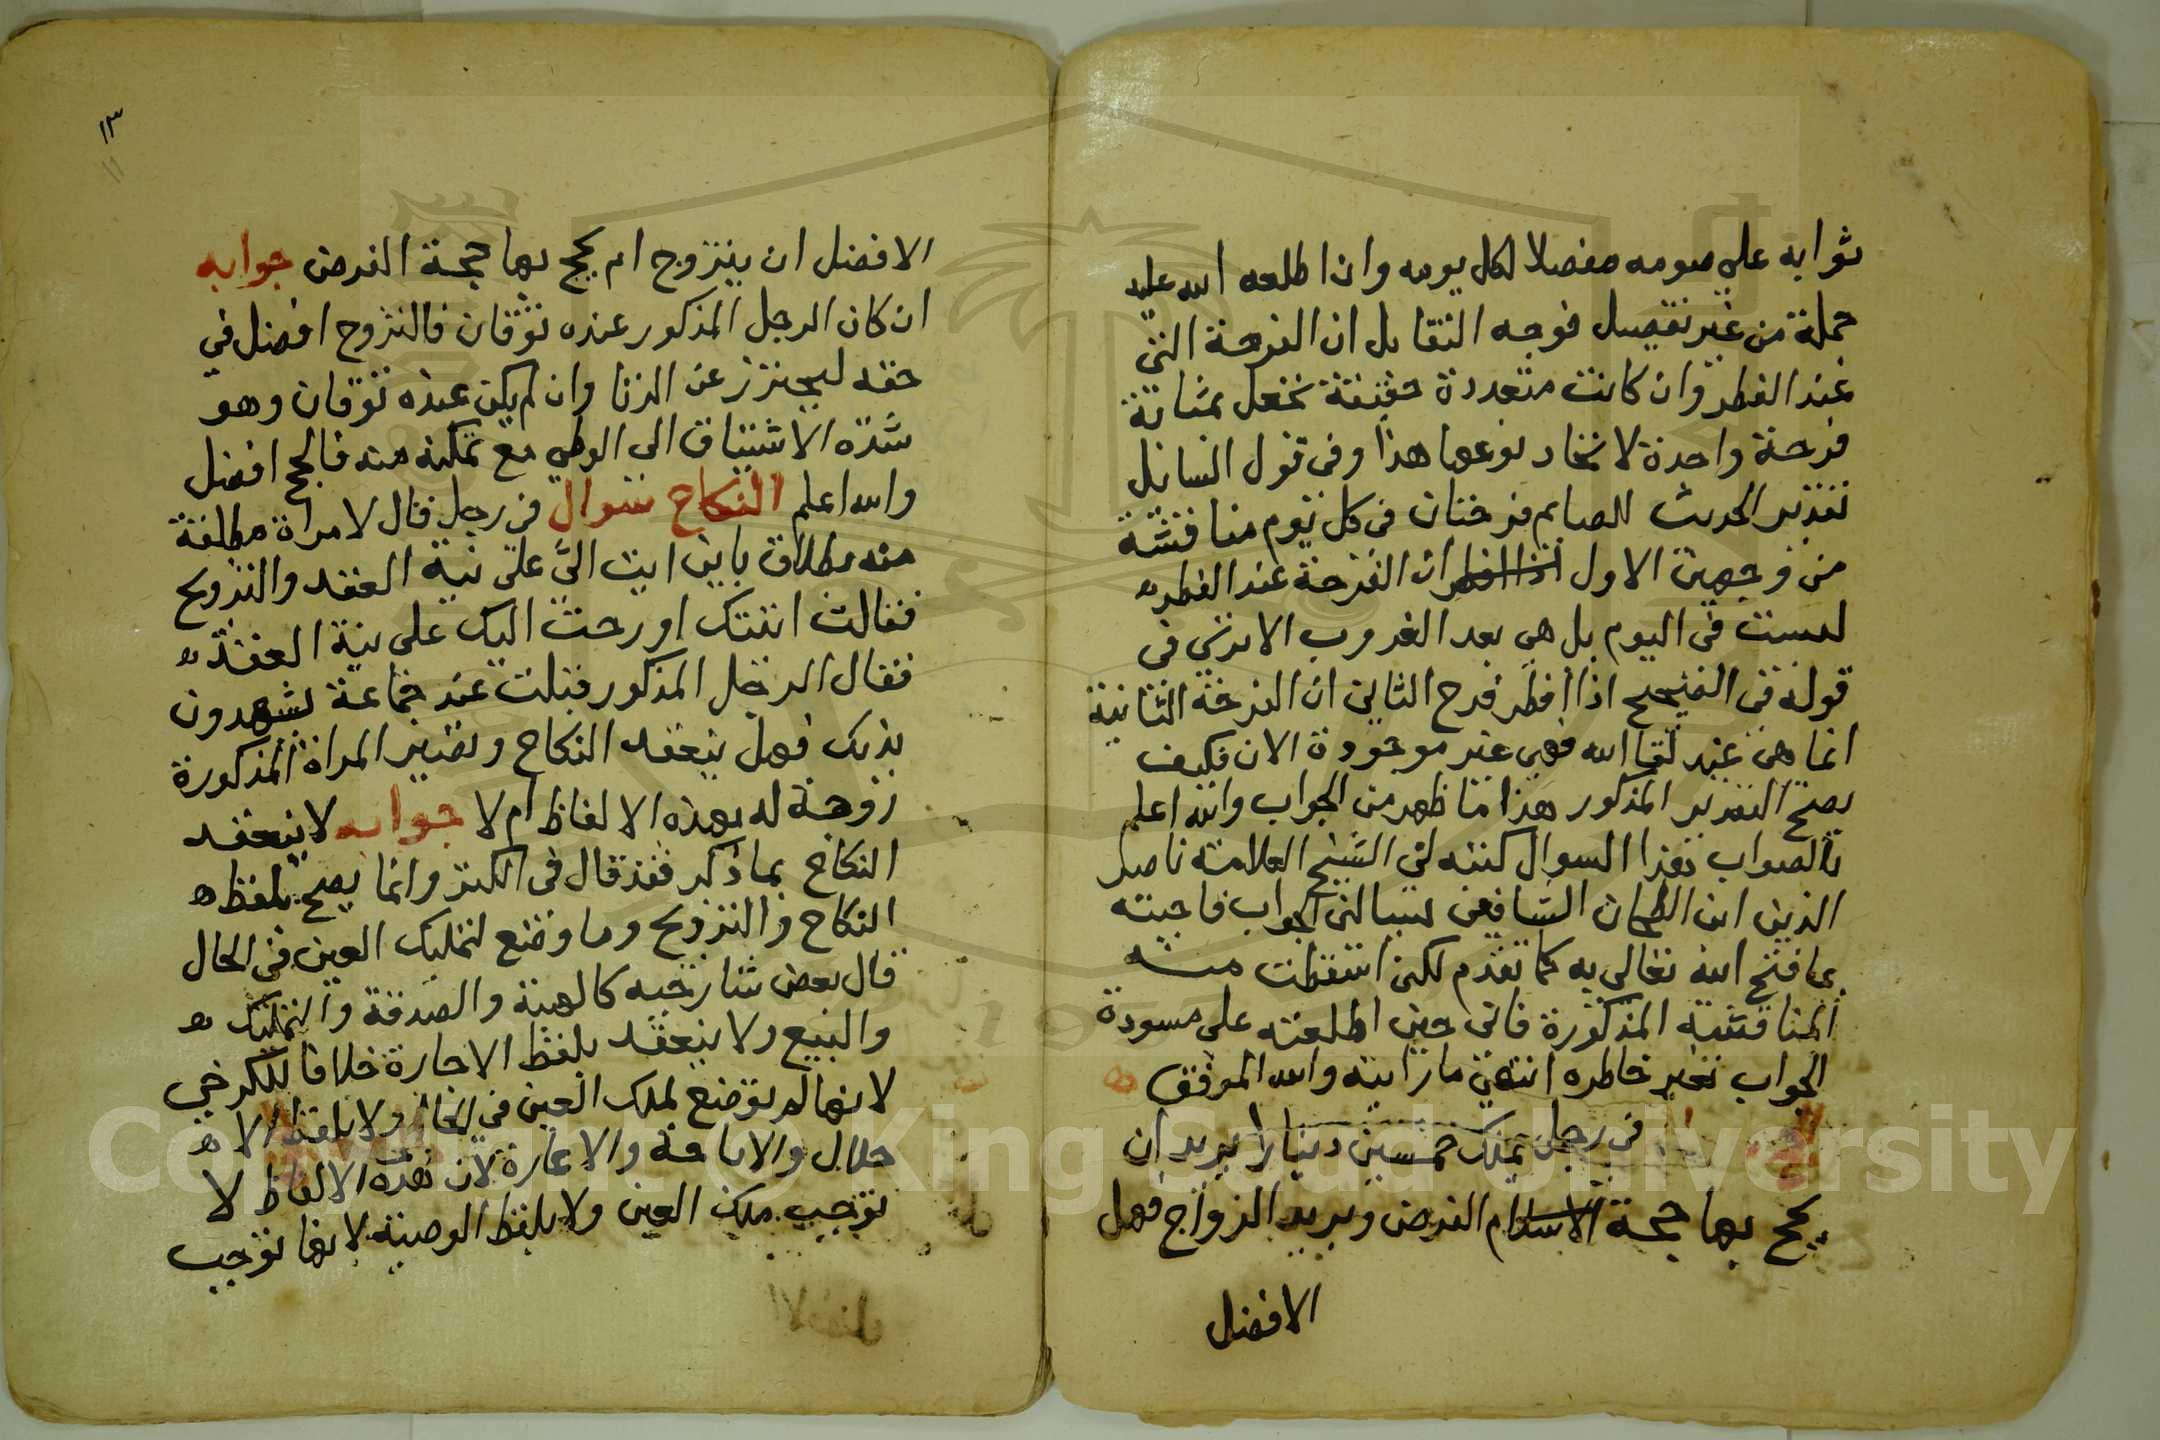 ثوابه على صومه مفصلا لكل يومه وان اطلعه الله عليه
جملة من غير تفصيل فوجه التقابل ان الفرحة التي
عند الفطر وان كانت متعددة حقيقة تجعل بمثابة
فرحة واحدة لاتحاد نوعها هذا وفي قول السايل
تقدير الحديث للصايم فرحتان في كل يوم مناقشة
من وجهين الاول ان الفرحة عند الفطر
ليست في اليوم بل هي بعد الغروب الا ترى في
قوله في الصحيح اذا افطر فرح الثاني ان الفرحة الثانية
انما هي عند لقا الله فهي غير موجودة الان فكيف
يصح التقدير المذكور هذا ما ظهر من الجواب والله اعلم
بالصواب وهذا السوال كتبه لي الشيخ العلامة ناصر
الدين ابن الطحان الشافعي ليسالني الجواب فاجبته
بما فتح الله تعالى به كما تقدم لكن اسقطت منه
المناقشة المذكورة فاني حين اطلعته على مسودة
الجواب تغير خاطره انتهى ما رايته والله الموفق
في رجل يملك خمسين دينارا يريد ان
يحج بها حجة الاسلام الفرض ويريد الزواج فهل
الافضل
١٣
١١
الافضل ان يتزوج ام يحج بها حجة الفرض جوابه
ان كان الرجل المذكور عنده توقان فالتزوج افضل في
حقه ليحترز عن الزنا وان لم يكن عنده توقان وهو
شدة الاشتياق الى الوطي مع تمكنه منه فالحج افضل
والله اعلم النكاح سوال في رجل قال لامراة مطلقة
منه بطلاق باين ايت اليَّ على نية العقد والتزويج
فقالت اتيتك او رحت اليك على نية العقد
فقال الرجل المذكور قبلت عند جماعة يشهدون
بذلك فهل ينعقد النكاح وتصير المراة المذكورة
زوجة له بهذه الالفاظ ام لا جوابه لا ينعقد
النكاح بما ذكر فقد قال في الكنز وانما يصح بلفظ
النكاح والتزويج وما وضع لتمليك العين في الحال
قال بعض شارحيه كالهبة والصدقة والتمليك
والبيع ولا ينعقد بلفظ الاجارة خلافا للكرخي
لانها لم توضع لملك العين في الحال ولا بلفظ الا
حلال والاباحة والاعارة لان هذه الالفاظ لا
توجب ملك العين ولا بلفظ الوصية لانها توجب
Copyright © King Saud University
1957